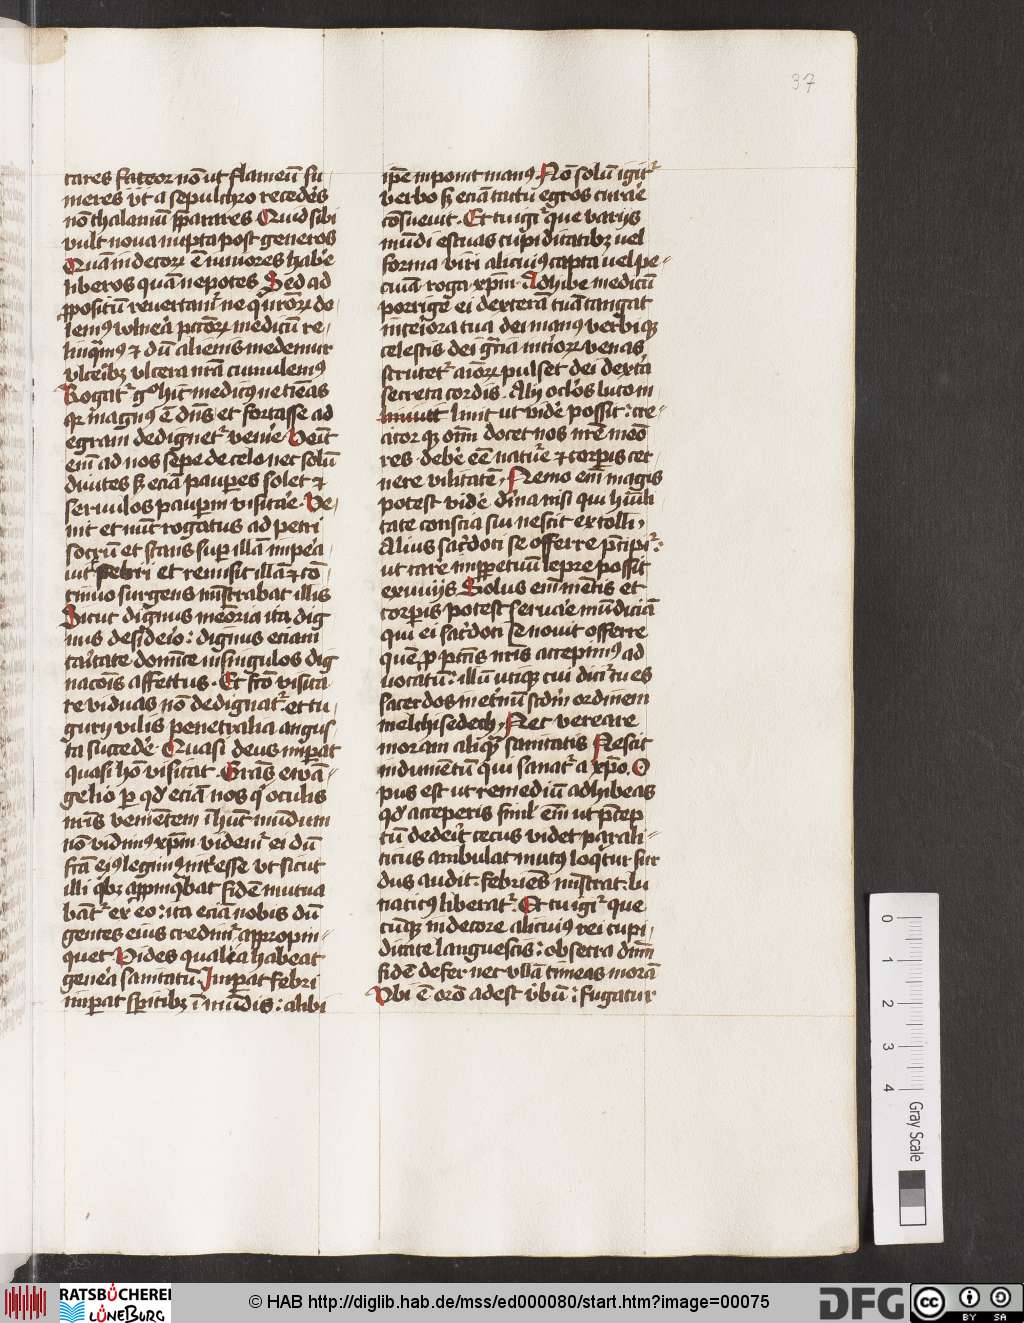 37
tares fateor nō ut flameū su
meres vt a sepulchro recedēs
nō thalamū sparares Quid sibi
vult noua nupta post generos
Quā indecorū ē iuniores habe
liberos quā nepotes Sed ad
ppositū reuertamr ne qi nrorū do
lemus vulnera pctorū medicū re
linqmus et dū alienis medemur
vlceribz vlcera nrā cumulemus
Rogatr gº hūc medicus ne timeas
qr magnus ē dns et fortasse ad
egram dedignetr venire Venit
eni ad nos sepe de celo nec solū
diuites sz eciā pauperes solet et
seruulos pauperm visitare Ve
nit et nūc rogatus ad petri
socrū et stans supr illā impera
uit febri et remisit illā et cō
tinuo surgens mistrabat illis
Sicut dignus memoria ita dig
nus desiderio : dignus eciam
caritate dominice in singulos dig
nacois affectus . Et frō visita
re viduas nō dedignatr et tu
gurij vilis penetralia angus
ta succede Quasi deus imperat
quasi hō visitat . Gras euā
gelio per qd eciā nos qi oculis
nris venientem ī hūc mūdum
nō vidimus xpm videmr ei dū
scā eius legimus interesse vt sicut
illi qbz appinqbat fidē mutua
bantr ex eo : ita eciā nobis dū
gentes eius credimr appropin
quet Vides qualia habeat
genera sanitatū . Imperat febri
imperat spiritibz īmūdis : alibi
ipe inponit manus . Nō solū igitr
verbo sz eciā tactu egros curare
cōsueuit . Et tu igir que varijs
mūdi estuas cupiditatibz uel
forma viri alicuius capta uel pe
cuia roga xpm Adhibe medicū
porrige ei dexterā tuā tangat
interiora tua dei manus verbique
celestis dei gracia interiorū venas
scrutetr aiorū pulset dei dextera
secreta cordis . Alij oclos luto in
linit ut videre possit : cre
ator qz oim docet nos nre memo
res debere eē nature et corporis cer
nere vilitatē . Nemo eni magis
potest videre diuina nisi qui hūili
tate conscia sui nescit extolli ,
Alius sacdoti se offerre pcipir .
ut care imperpetuū lepre possit
exuuijs Solus eni mentis et
corporis potest seruare mūdiciā
qui ei sacdoti se nouit offerre
quē pro pctis nris accepimus ad
uocatū : illū utique cui dicitr tu es
sacerdos in eternū scdm ordinem
melchisedech . Nec vereare
moram aliquā sanitatis Nescit
indumentū qui sanatr a xpo . O
pus est ut remediū adhibeas
qd acceperis simul eni ut precep
tū dederit cecus videt parali
ticus ambulat mutus loqtur sur
dus audit . febriens mistrat : lu
naticus liberatr . Et tu igir que
cūque indecore alicuius rei cupi
ditate languescis : obsecra dnm
fidē defer nec vllā timeas morā
Vbi ē oro adest vbū : fugatur
0
1
2
3
4
Gray Scale
RATSBÜCHEREI
LÜNEBURG
© HAB http://diglib.hab.de/mss/ed000080/start.htm?image=00075
DFG
cc BY SA